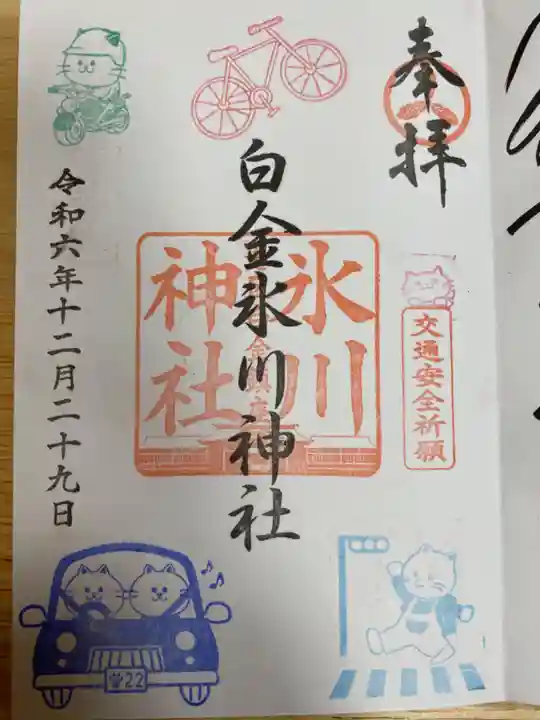 奉拝
交通安全祈願
白金氷川神社
氷川
神社
令和六年十二月二十九日
22